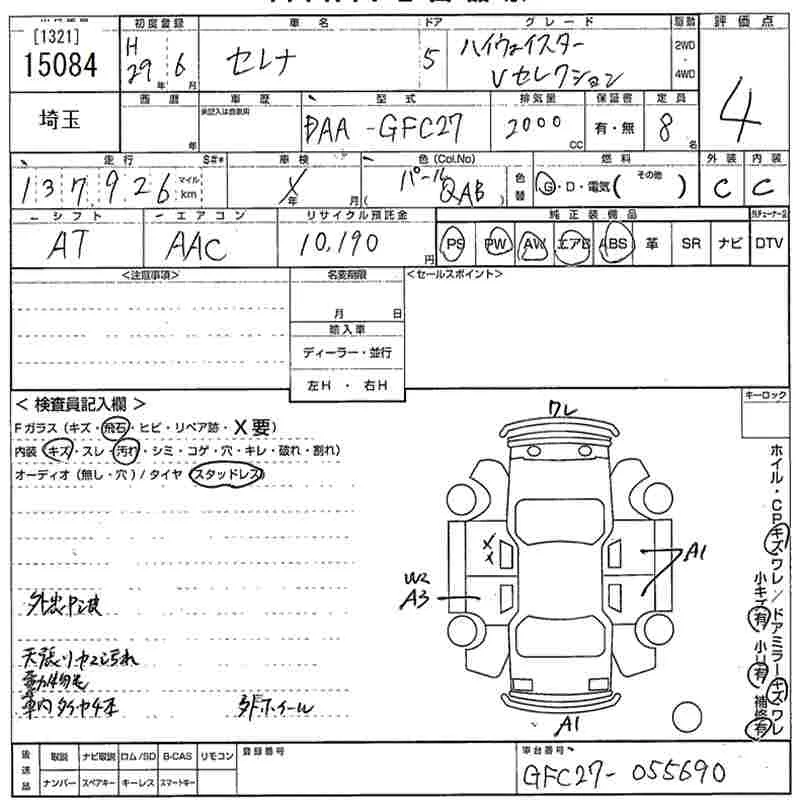 初度登録 車名 ドア グレード 駆動 評価点
[1321]
15084
H 29年 6月
セレナ
5
ハイウェイスター
Vセレクション
2WD・4WD
4
埼玉
西暦 車歴 型式 排気量 保証書 定員
年
承認記入は自家用
DAA-GFC27
2000 CC
有・無
8名
走行 S#* 車検 色(Col.No) 燃料 外装 内装
137,926 マイル km
X年 月
パール QAB
色替
G・D・電気( その他 )
C C
シフト エアコン リサイクル預託金 純正装備品
AT
AAC
10,190円
PS PW AW エアB ABS 革 SR ナビ DTV
<注意事項> 名変期限 <セールスポイント>
月 日
輸入車
ディーラー・並行
左H・右H
<検査員記入欄>
キーロック
Fガラス(キズ・飛石・ヒビ・リペア跡・X要)
内装(キズ・スレ・汚れ・シミ・コゲ・穴・キレ・破れ・割れ)
オーディオ(無し・穴)/タイヤ(スタッドレス)
ワレ
X
X
A1
W2
A3
A1
ホイル・CPキズワレ/ドアミラーキズワレ
小キズ有 小凹有 補修有
天張りヤニ汚れ
車内タイヤ4本
外ホイール
後送品
取説 ナビ取説 ロム/SD B-CAS リモコン
ナンバー スペアキー キーレス スマートキー
登録番号
車台番号
GFC27-055690